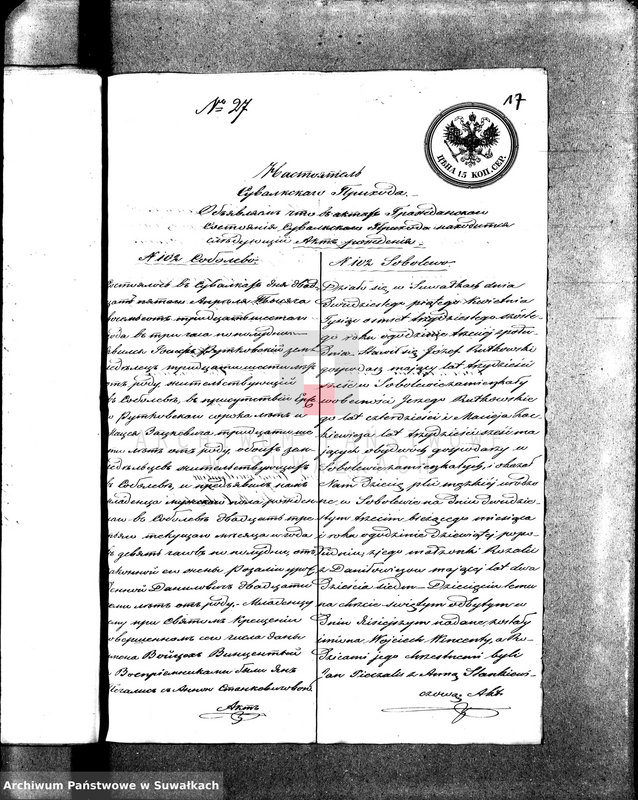 № 27
17
ЦѢНА 15 КОП. СЕР.
Настоятель
Сувалкскаго Прихода.
Объявляетъ что въ актахъ Гражданскаго
состоянія Сувалкскаго Прихода находится
слѣдующій Актъ рожденія.
№ 102 Соболево.
Состоялось въ Сувалкахъ дня двад
цать пятаго Апрѣля тысяча
восемьсотъ тридцать шестаго
года въ три часа пополудни.
Явился Іосифъ Рутковскій зем
ледѣлецъ тридцати шести лѣтъ
отъ роду жительствующій
въ Соболевѣ, въ присутствіи
Рутковскаго сорока лѣтъ и
Мацея Зацкевича тридцати ше
сти лѣтъ отъ роду, обоихъ зем
ледѣльцевъ жительствующихъ
въ Соболевѣ, и предъявилъ намъ
младенца мужскаго пола, рожден
наго въ Соболевѣ двадцать тре
тьяго текущаго мѣсяца и года
въ девять часовъ по полудни, отъ
законной его жены Розаліи урож
денной Даниловичъ двадцати
семи лѣтъ отъ роду. Младенцу
сему при Святомъ Крещеніи
совершенномъ сего числа даны
имена Войцехъ Винцентій
а Воспріемниками были Янъ
Печалисъ съ Анною Станкевичовою
Актъ
N 102 Sobolewo.
Działo się w Suwałkach dnia
Dwudziestego piątego Kwietnia
Tysiąc ośmset trzydziestego szóste-
go roku o godzinie trzeciej z połu
dnia. Stawił się Józef Rutkowski
gospodarz mający lat trzydzieści
sześć w Sobolewie zamieszkały
w obecności Jerzego Rutkowskie
go lat czterdzieści i Macieja Zac
kiewicza lat trzydzieści sześć ma
jących obydwóch gospodarzy w
Sobolewie zamieszkałych, i okazał
Nam dziecię płci męzkiej urodzo
ne w Sobolewie na dniu dwudzie
stym trzecim bieżącego miesiąca
i roku o godzinie dziewiątej popo
łudniu, z jego małżonki Rozalii
z Daniłowiczów mającej lat dwa
dzieścia siedm. Dziecięciu temu
na chrzcie świętym odbytym w
dniu dzisiejszym nadane zostały
imiona Wojciech Wincenty, a Ro-
dzicami jego chrzestnemi byli
Jan Pieczalis z Anną Stankiewi-
czową. Akt
ARCHIWUM PAŃSTWOWE
Archiwum Państwowe w Suwałkach